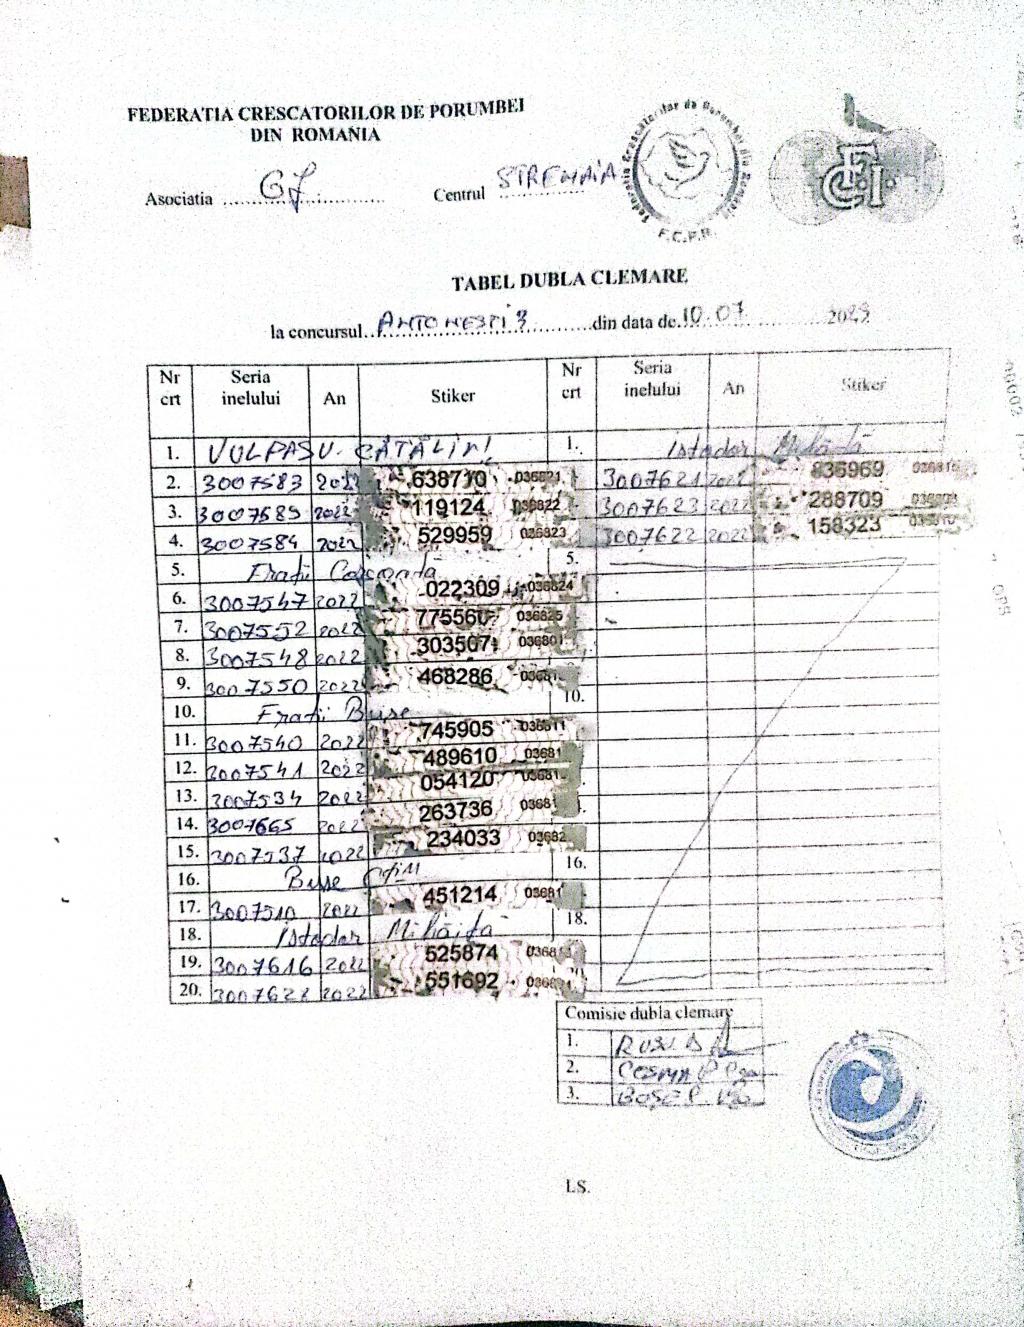 FEDERATIA CRESCATORILOR DE PORUMBEI
DIN ROMANIA
Asociatia GJ
Centrul STREHAIA
Federatia Crescatorilor de Porumbei din Romania
F.C.P.R.
FCI
TABEL DUBLA CLEMARE
la concursul ANTONESTI 3 din data de 10.07 2023
Nr crt Seria inelului An Stiker Nr crt Seria inelului An Stiker
1. VULPAȘU CĂTĂLIN 1. Istodor Mihăiță
2. 3007583 2022 638710 036821 3007621 2022 836969
3. 3007585 2022 119124 036822 3007623 2022 288709
4. 3007584 2022 529959 036823 3007622 2022 158323
5. Frații 5.
6. 3007547 2022 022309 036824
7. 3007552 2022 775560 036825
8. 3007548 2022 303507 036801
9. 3007550 2022 468286 03681
10. Frații Buse 10.
11. 3007540 2022 745905 036811
12. 3007541 2022 489610 03681
13. 3007534 2022 054120 03681
14. 3007665 2022 263736 0368
15. 3007537 2022 234033 03682
16. Buse 16.
17. 3007510 2022 451214 03681
18. Istodor Mihăiță 18.
19. 3007616 2022 525874 0368
20. 3007628 2022 551692 0368
Comisie dubla clemare
1. RUSU
2.
3. BUSE
LS.